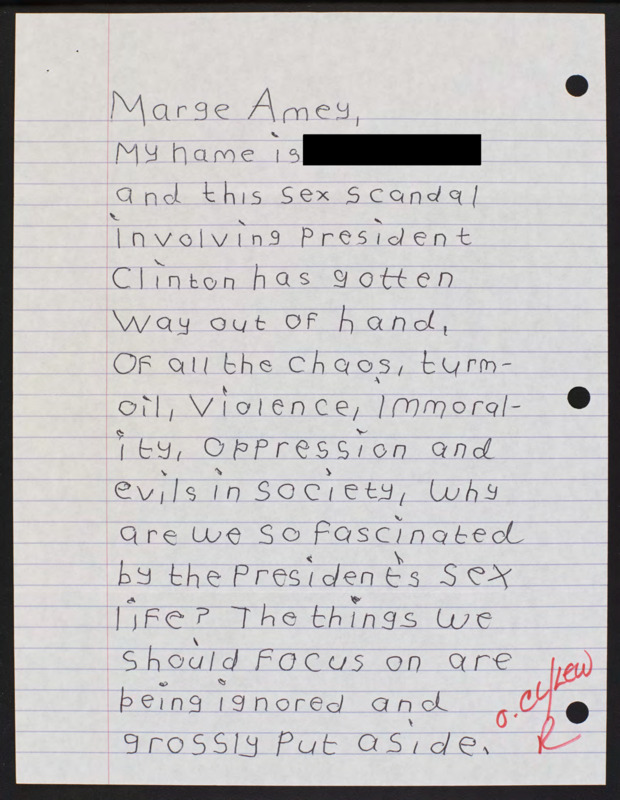 Marge Amey,
My name is
and this sex scandal
involving president
Clinton has gotten
way out of hand,
Of all the chaos, turm-
oil, violence, immoral-
ity, oppression and
evils in society, why
are we so fascinated
by the president's sex
life? The things we
should focus on are
being ignored and
grossly put aside.
R